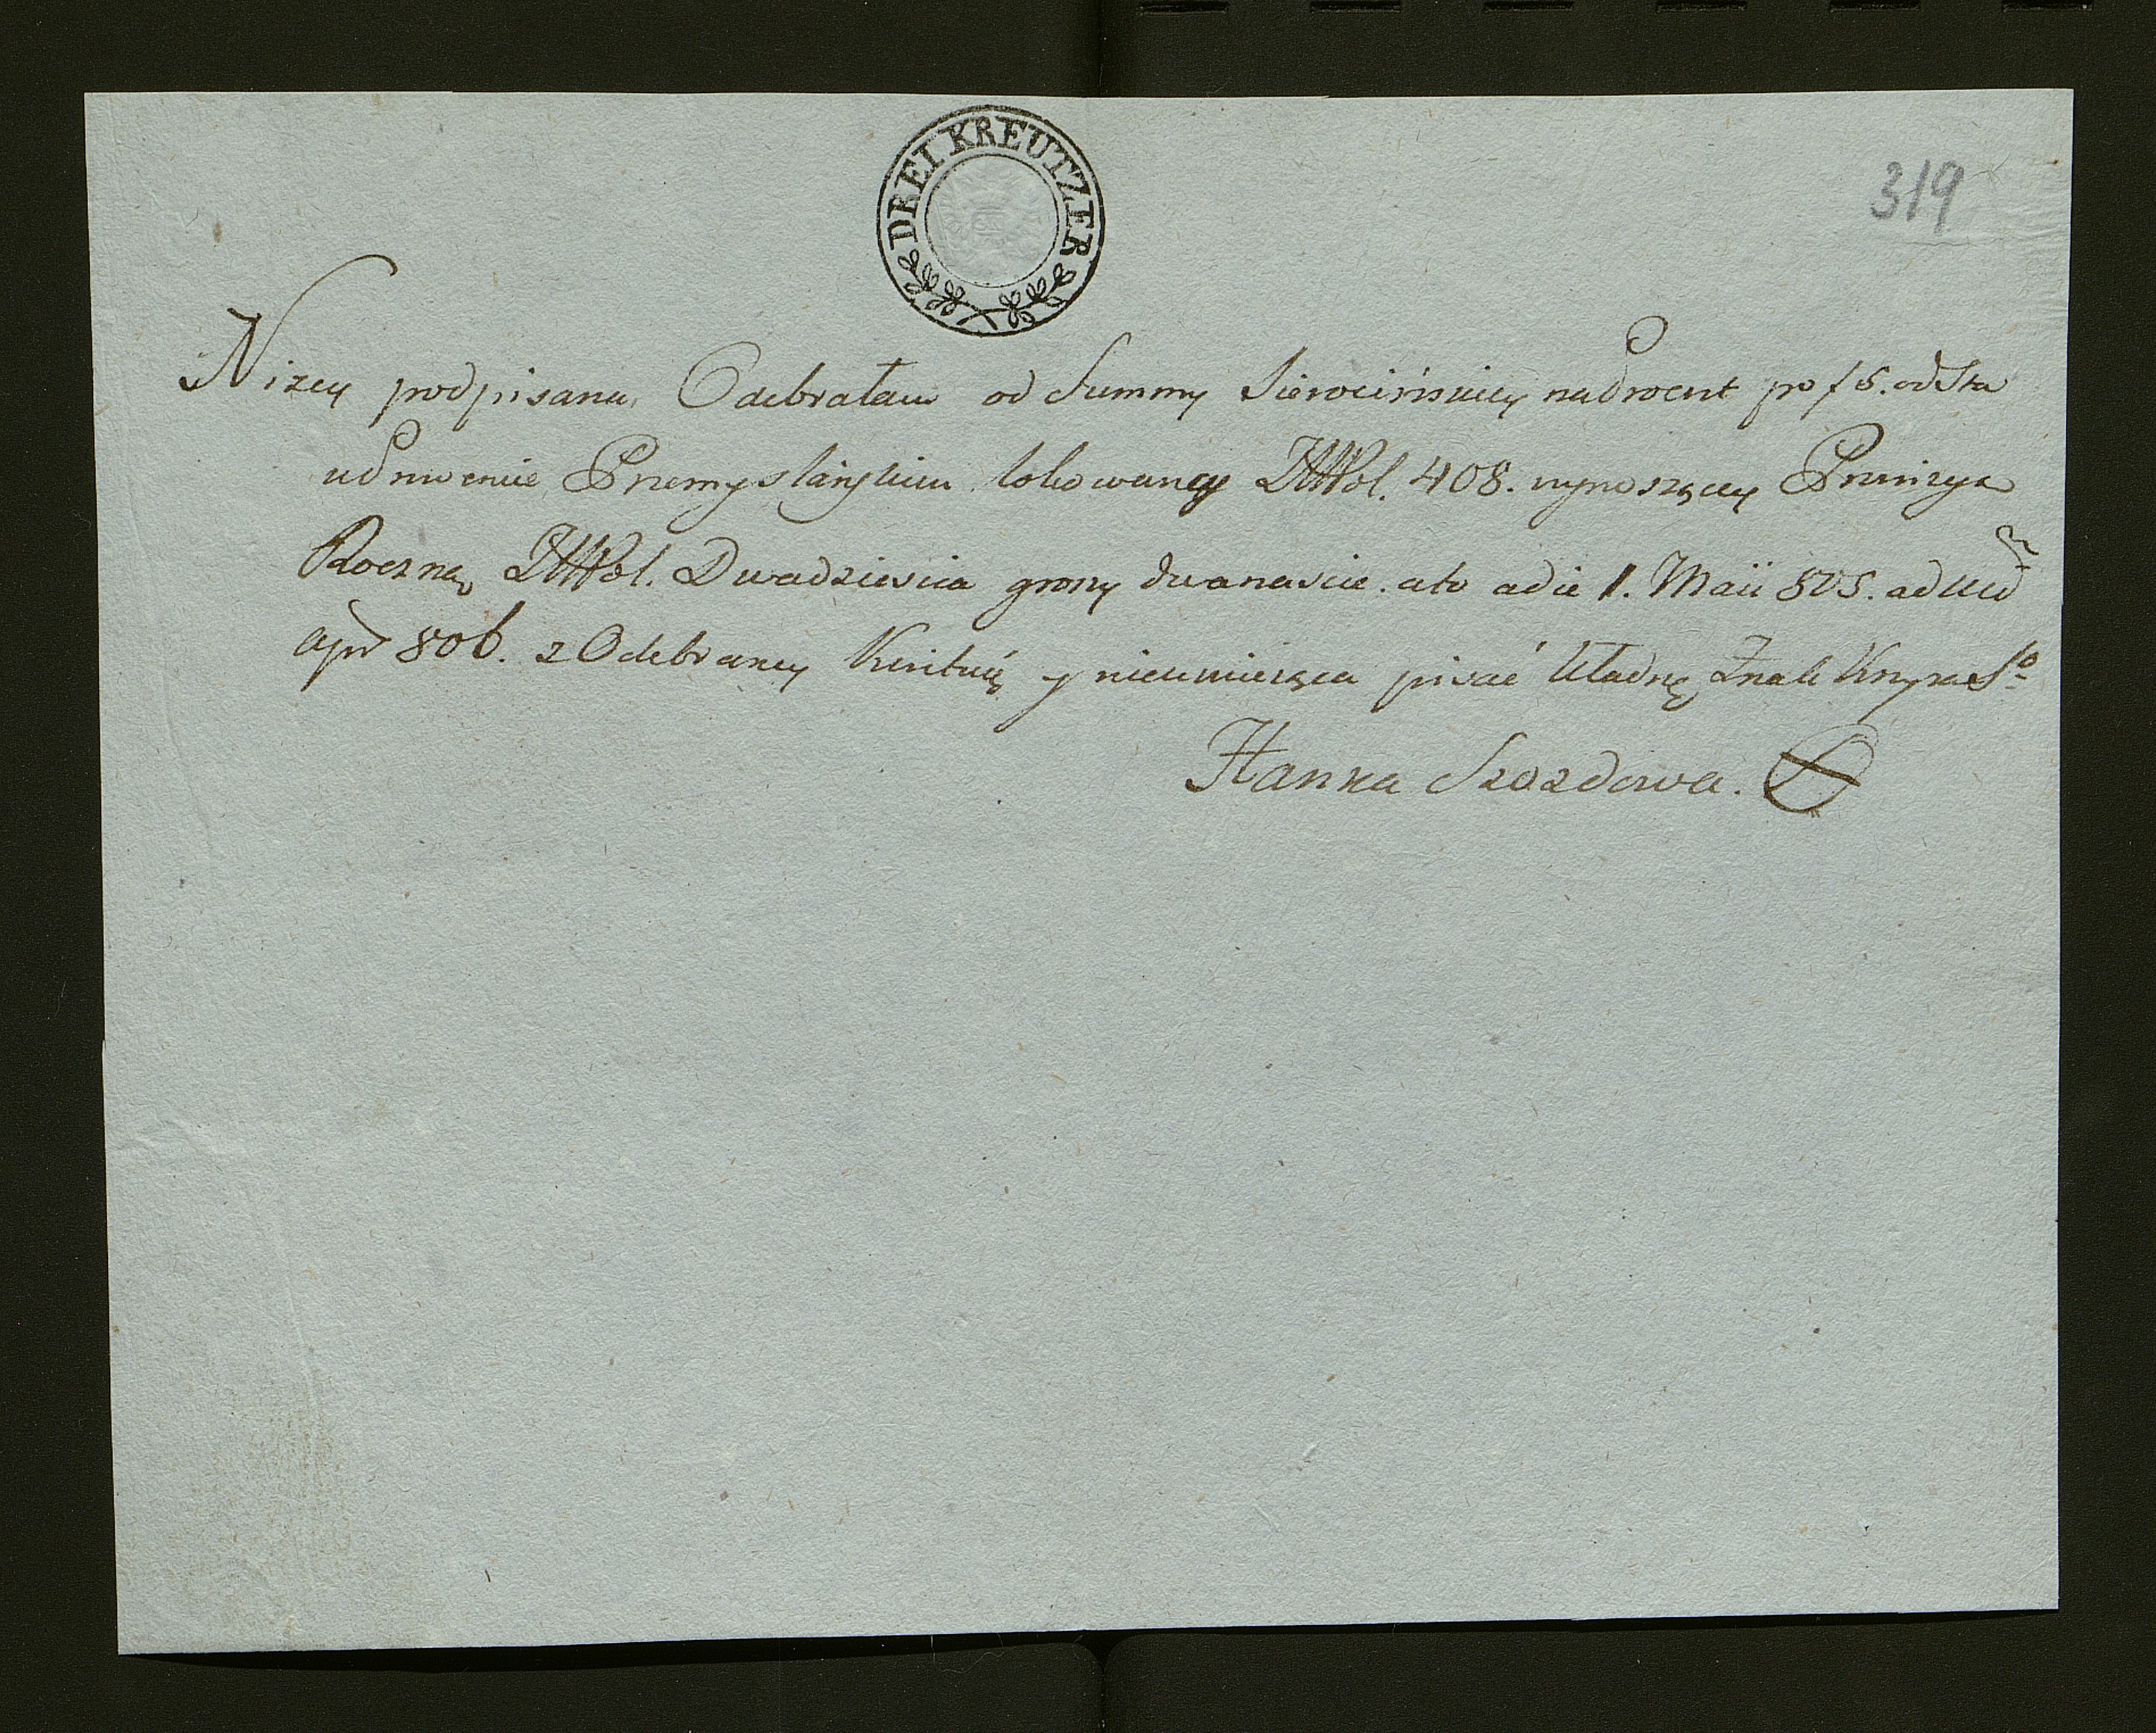 DREI KREUTZER
319
Nizey podpisana Odebrałam od Summy Sierocińskiey na Procent po f 5. od Sta
w Przemyslańskim lokowaney ZłłPol. 408. wynoszącey Prowizyą
Roczną ZłłPol. Dwadziescia groszy dwanascie. a to a die 1. Maii 805. ad
806. z Odebraney Kwituię y nieumieiąca pisać kładnę Znak Krzyża So
Hanka Szozdowa.